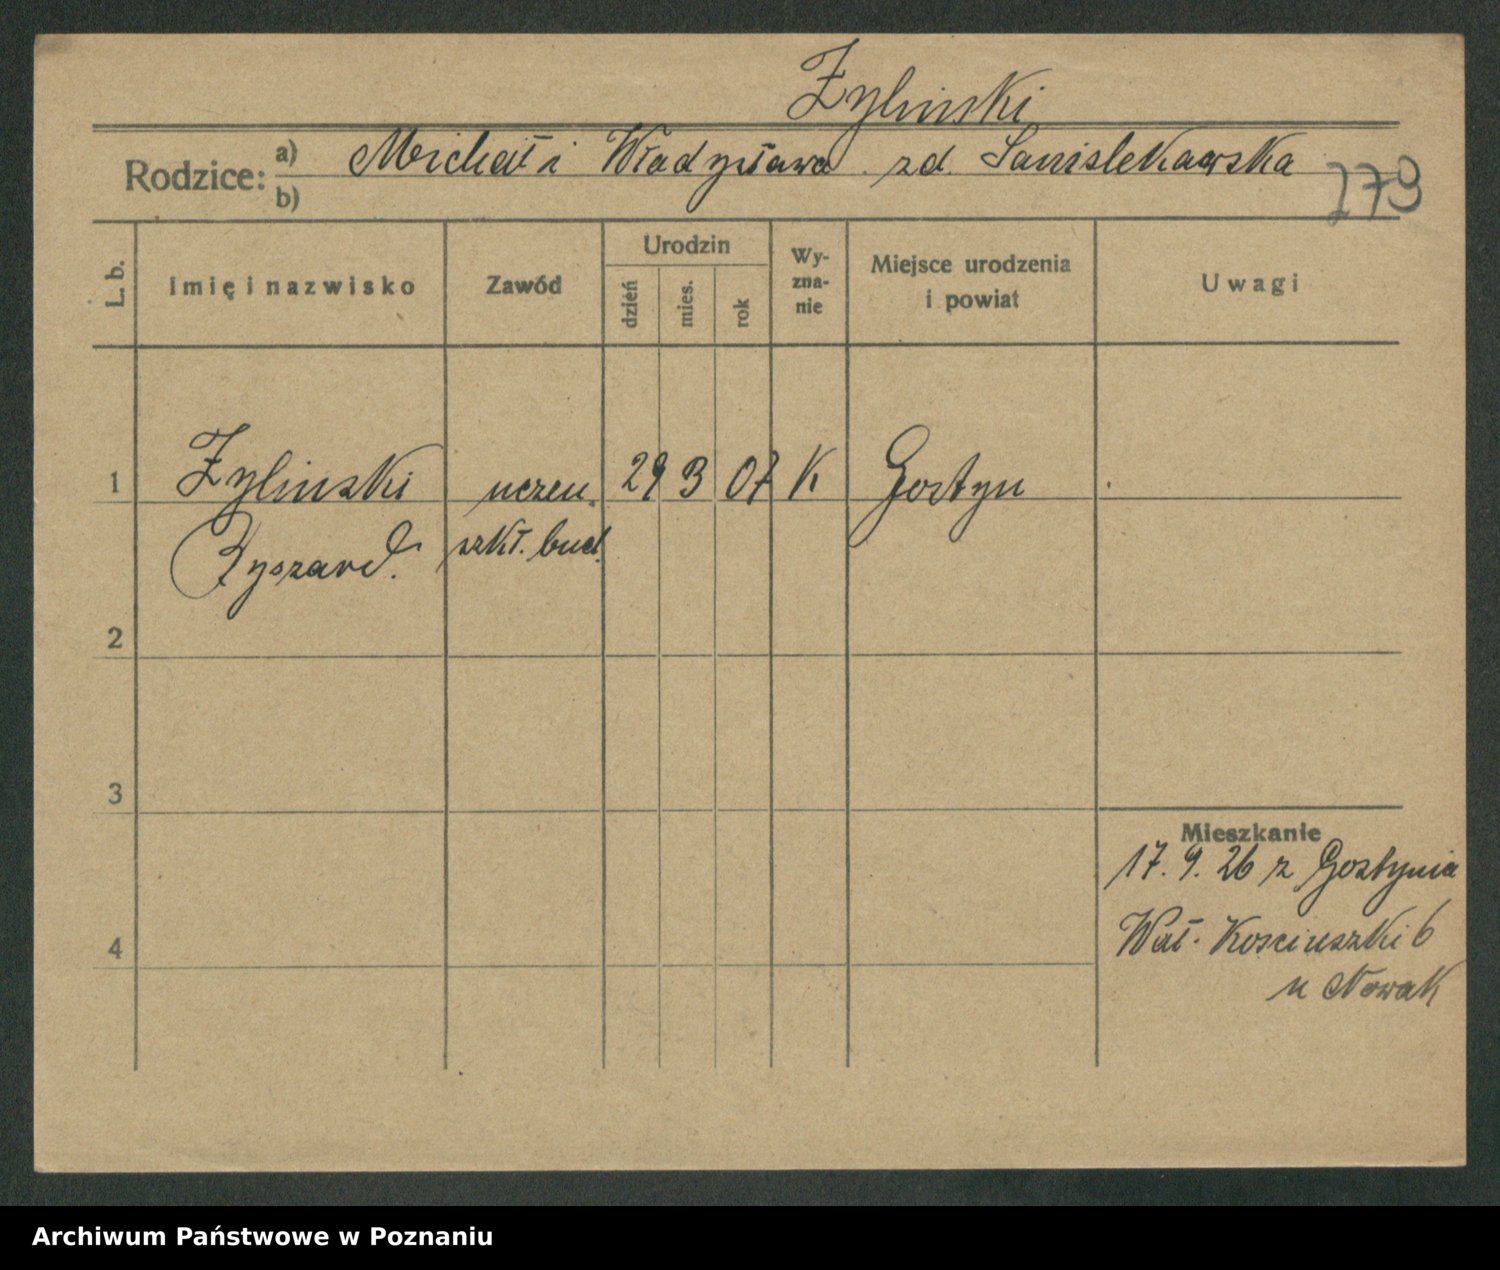 Żyliński
Rodzice: a) Michał i Władysława zd.
b)
279
L. b.
Imię i nazwisko
Zawód
Urodzin
dzień
mies.
rok
Wy-
zna-
nie
Miejsce urodzenia
i powiat
Uwagi
1 Żyliński uczeń. 29 3 07 K Gostyn
Ryszard. szkł. bud.
2
3
4
Mieszkanie
17. 9. 26 z Gostynia
Wał. Kościuszki 6
u Nowak
Archiwum Państwowe w Poznaniu